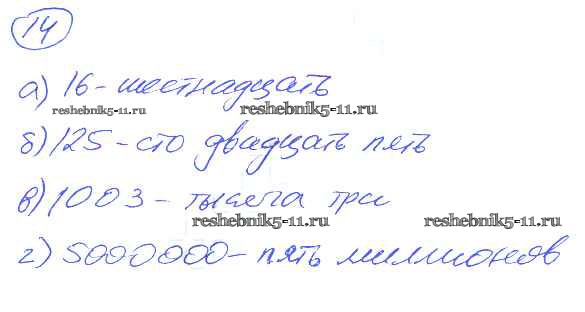 14
а) 16 - шестнадцать
reshebnik5-11.ru reshebnik5-11.ru
б) 125 - сто двадцать пять
в) 1003 - тысяча три
reshebnik5-11.ru reshebnik5-11.ru
г) 5000000 - пять миллионов